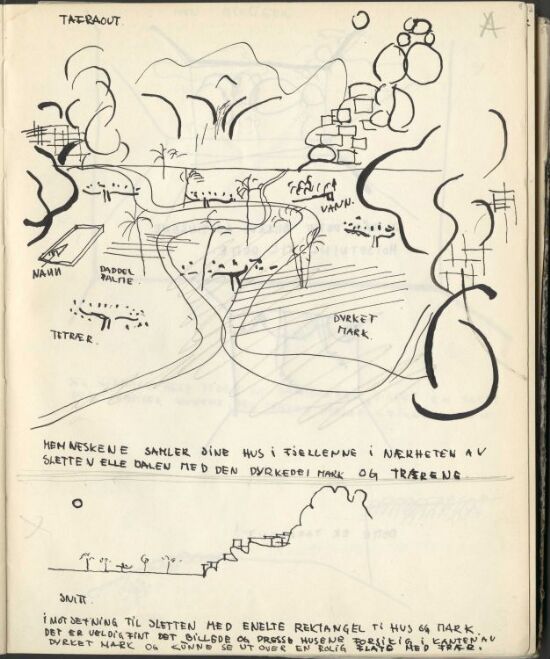 TAFRAOUT.
A
VANN.
NAVN
DADDEL
PALME.
TETRÆR.
DYRKET
MARK.
MENNESKENE SAMLER SINE HUS I FJELLENNE I NÆRHETEN AV
SLETTEN ELLE DALEN MED DEN DYRKEDE MARK OG TRÆRENE.
SNITT.
I MOTSETNING TIL SLETTEN MED ENELTE REKTANGEL TI HUS OG MARK.
DET ER VELDIG FINT DET BILLEDE OG DISSE HUSENE FORSIKIG I KANTEN AV
DYRKET MARK OG KUNNE SE UT OVER EN ROLIG FLATE MED TRÆR.